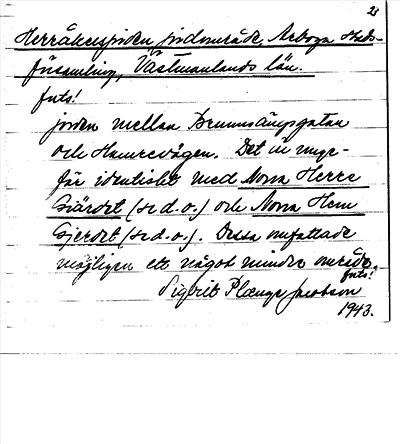 2
Herråkersjorden, jordområde, Arboga Stads-
församling, Västmanlands län.
forts!
jorden mellan Brunnsängsgatan
och Hamrevägen. Det är unge-
fär identiskt med Norra Herre
Giärdet (se d. o.) och Norra Hem
Gjerdet (se d. o.). Dessa omfattade
möjligen ett något mindre område
forts!
Sigbrit Plænge Jacobson
1943.